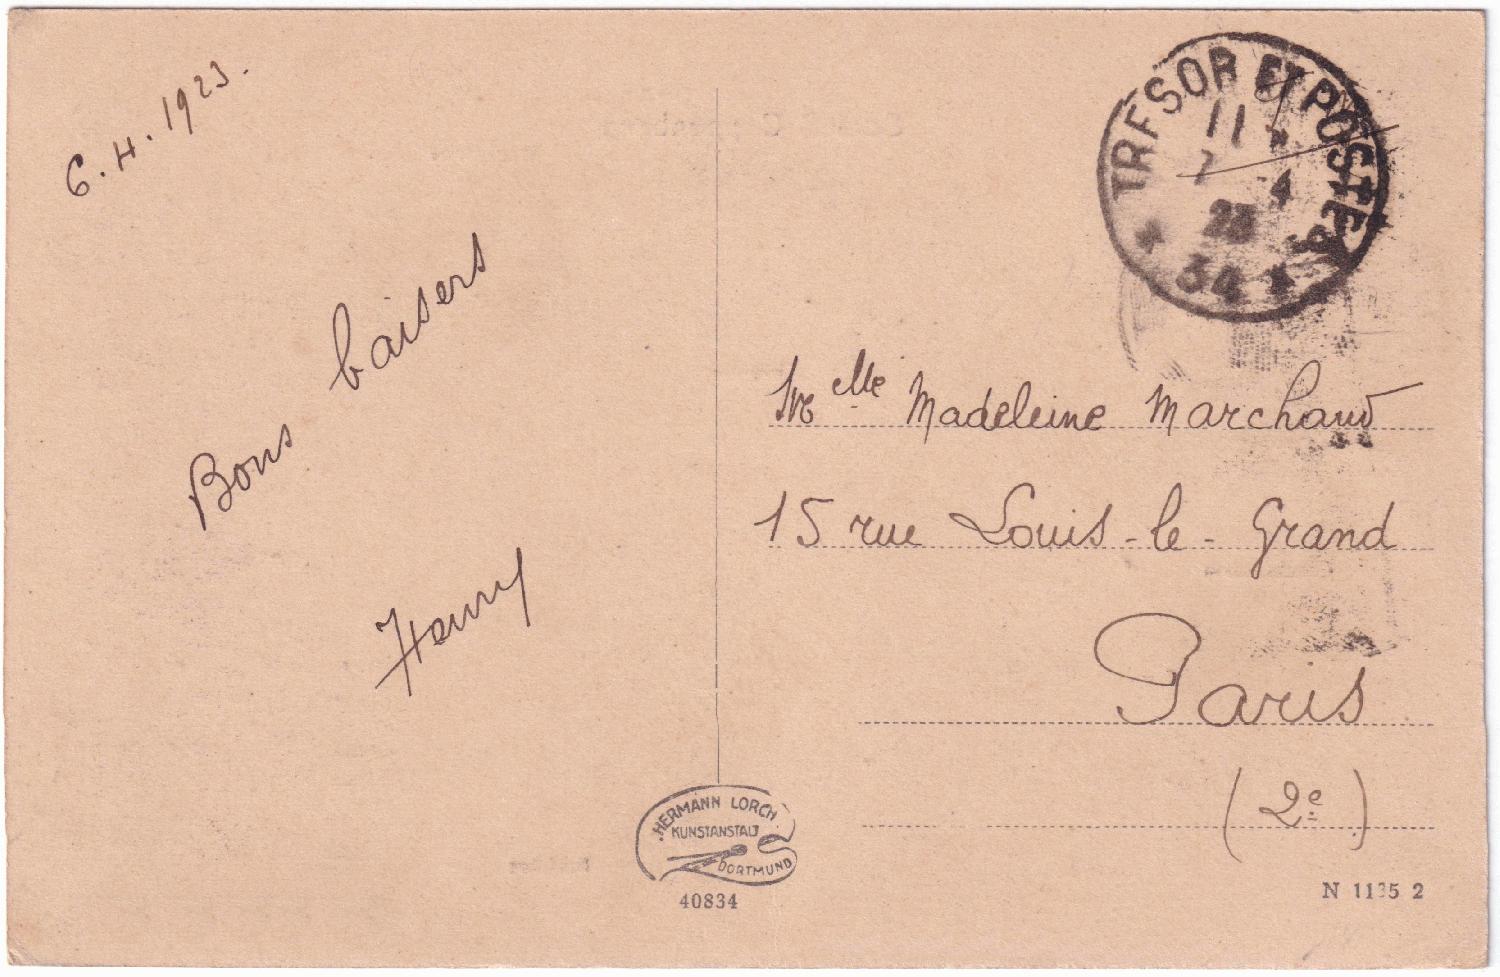 6.4.1923.
Bons baisers
Henry
TRESOR ET POSTES
11
7 4
23
* 34 *
Melle Madeleine Marchand
15 rue Louis-le-Grand
Paris
(2e)
HERMANN LORCH
KUNSTANSTALT
DORTMUND
40834
N 1135 2